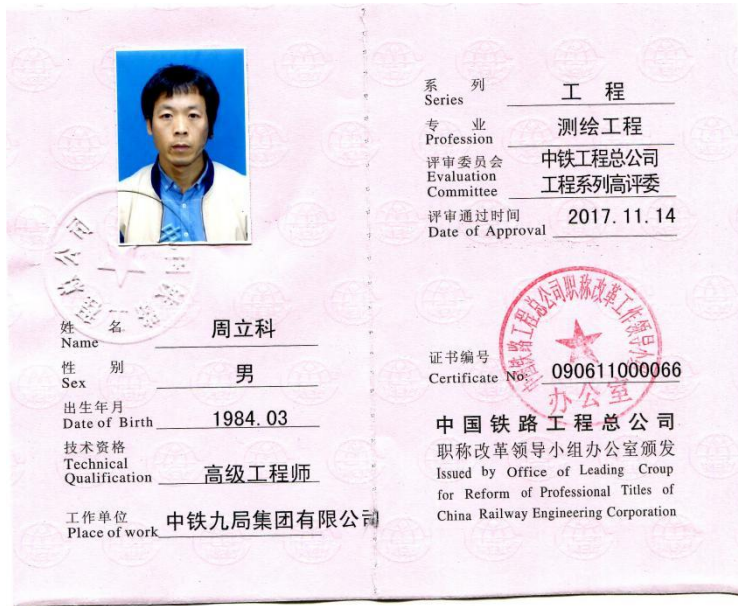 姓 名 周立科
Name
性 别 男
Sex
出生年月
Date of Birth 1984.03
技术资格
Technical
Qualification 高级工程师
工作单位 中铁九局集团有限公司
Place of work
系 列 工 程
Series
专 业 测绘工程
Profession
评审委员会 中铁工程总公司
Evaluation
Committee 工程系列高评委
评审通过时间 2017.11.14
Date of Approval
中国铁路工程总公司职称改革工作领导小组
办公室
证书编号
Certificate No: 090611000066
中国铁路工程总公司
职称改革领导小组办公室颁发
Issued by Office of Leading Croup
for Reform of Professional Titles of
China Railway Engineering Corporation